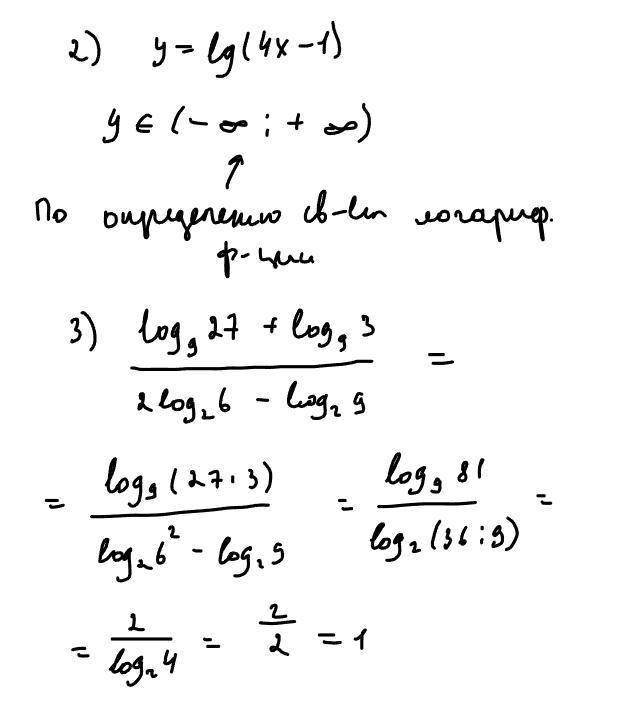 2) y = lg(4x-1)
y ∈ (-∞; +∞)
По определению св-in логариф.
ф-ции
3) (log₉ 27 + log₉ 3)/(2log₂6 - log₂ 9) =
= (log₉(27·3))/(log₂6² - log₂9) = (log₉ 81)/(log₂(36:9)) =
= 2/(log₂4) = 2/2 = 1